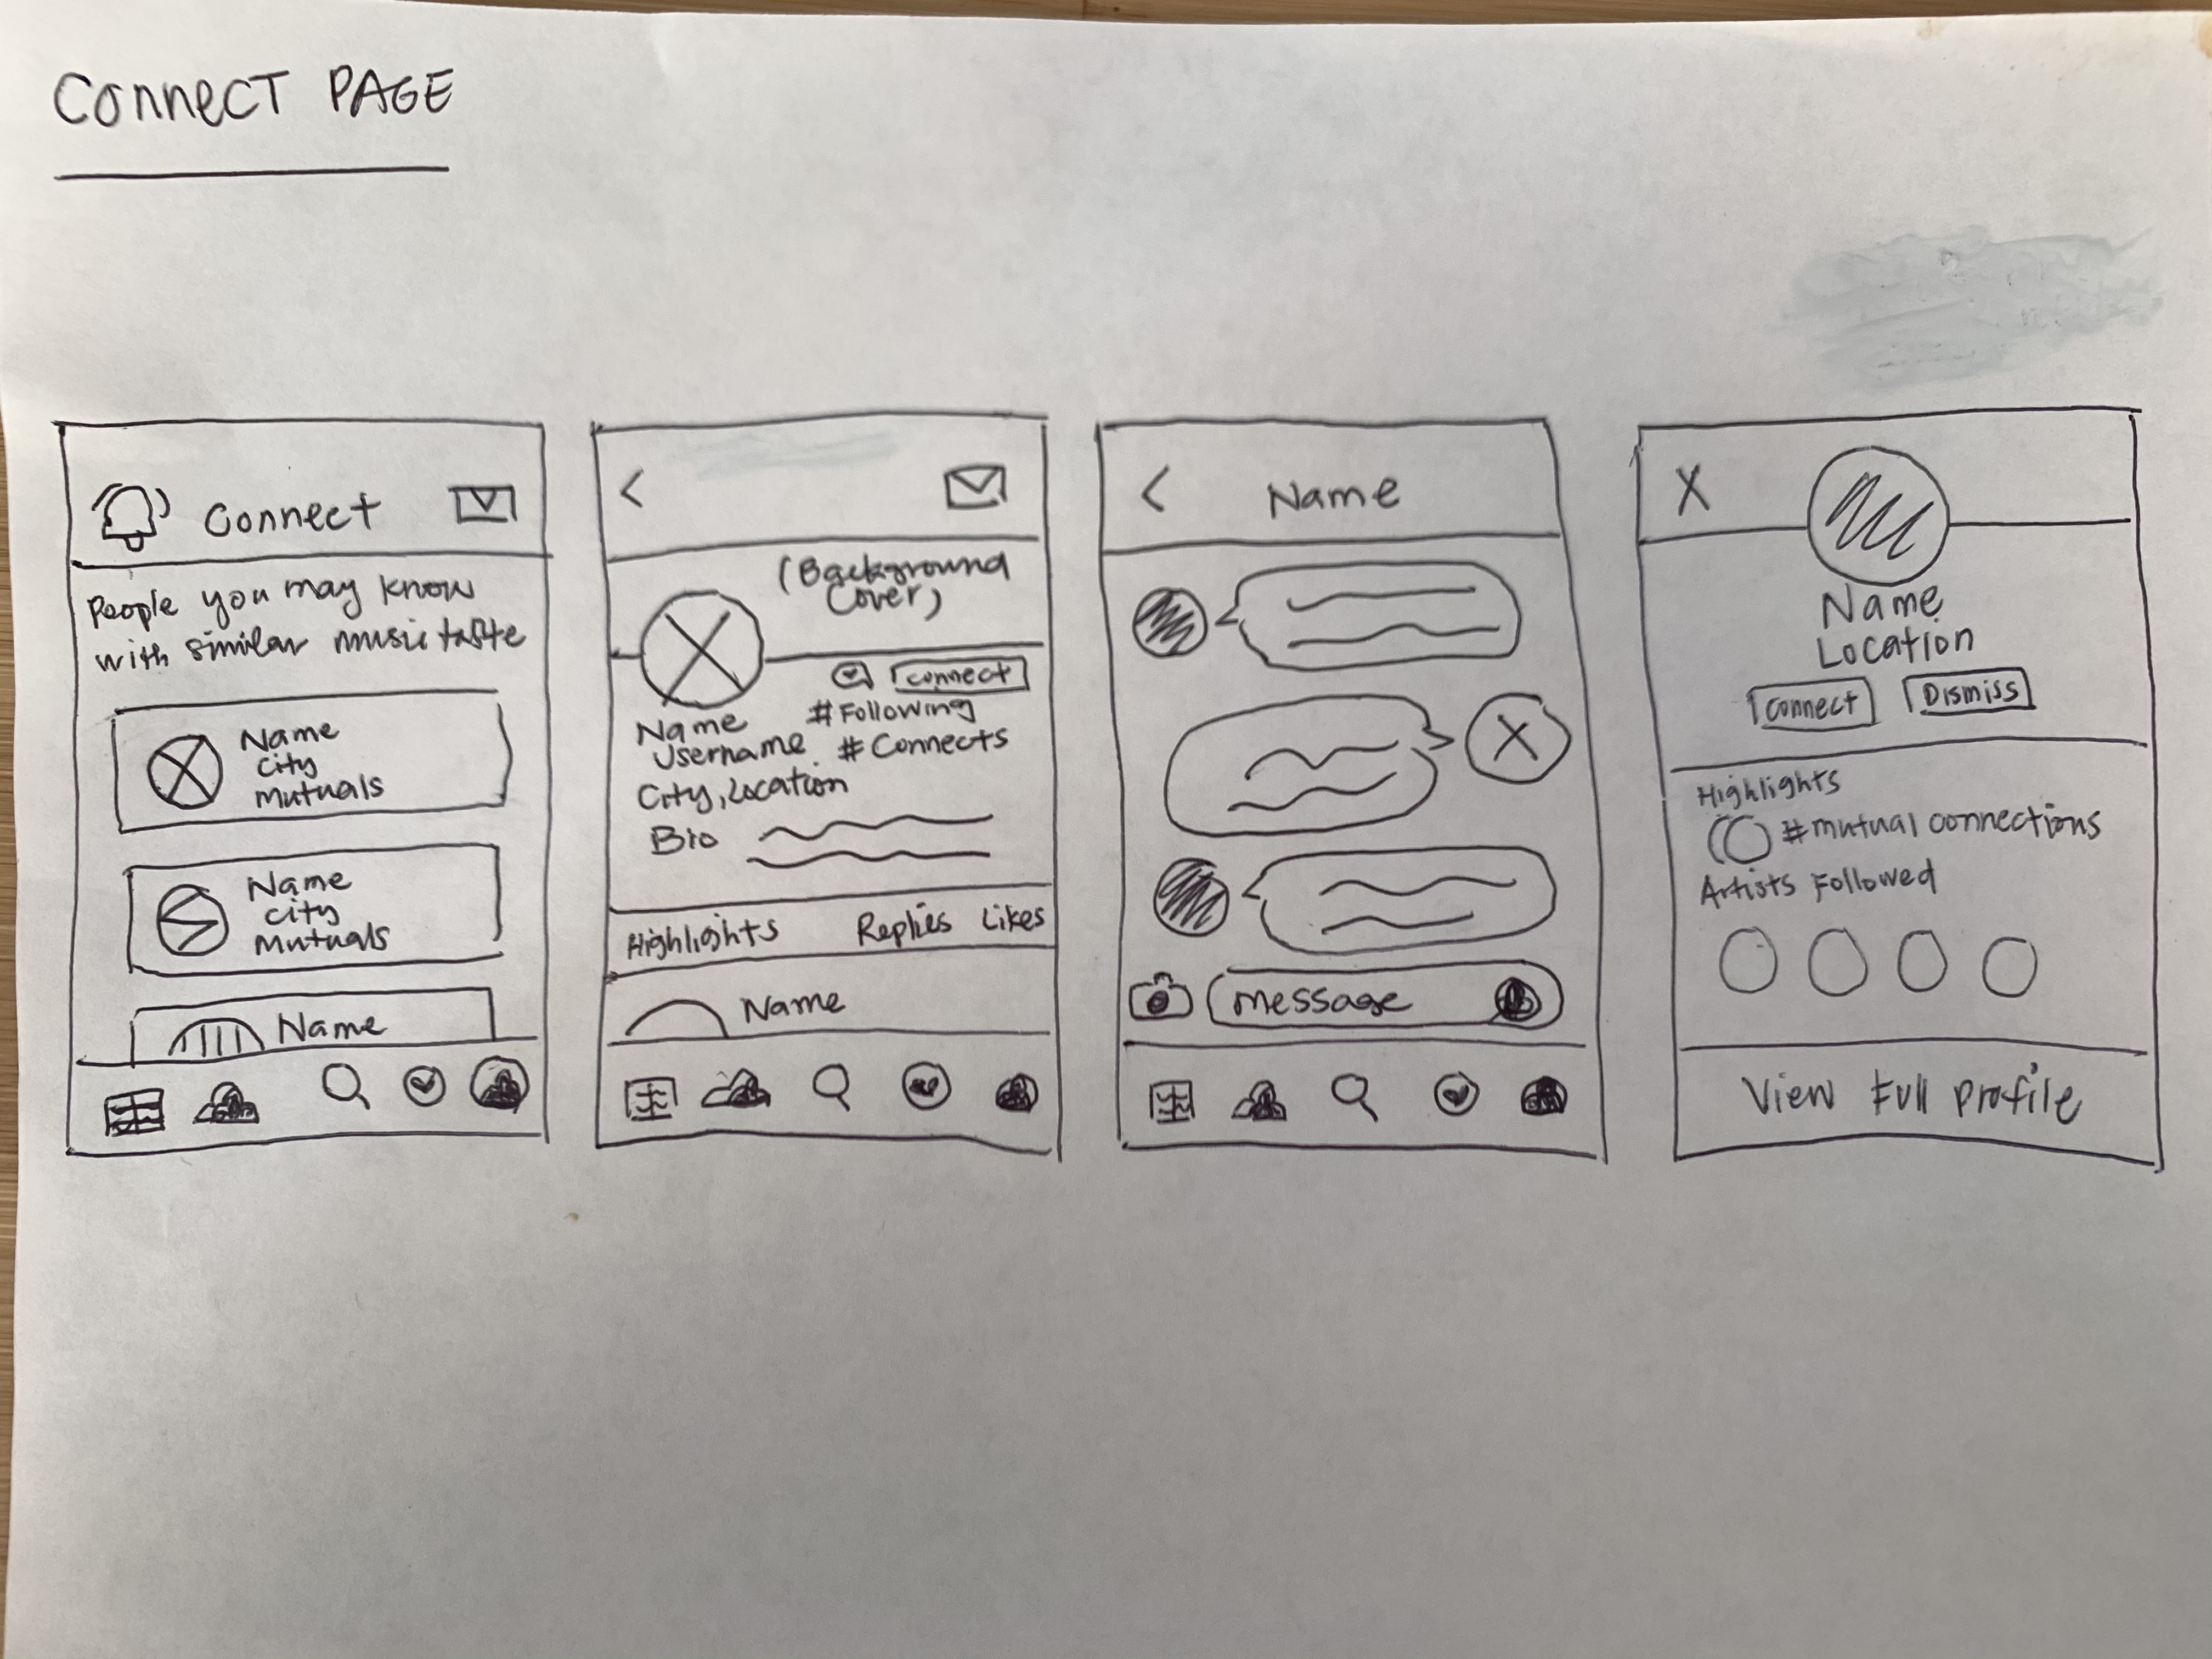 Connect PAGE
Connect
People you may know
with similar music taste
Name
City
Mutuals
Name
City
Mutuals
Name
<
(Background
Cover)
connect
Name
# Following
Username
# Connects
City, Location
Bio
Highlights Replies Likes
Name
<
Name
message
X
Name
Location
Connect
Dismiss
Highlights
# mutual connections
Artists Followed
View Full Profile